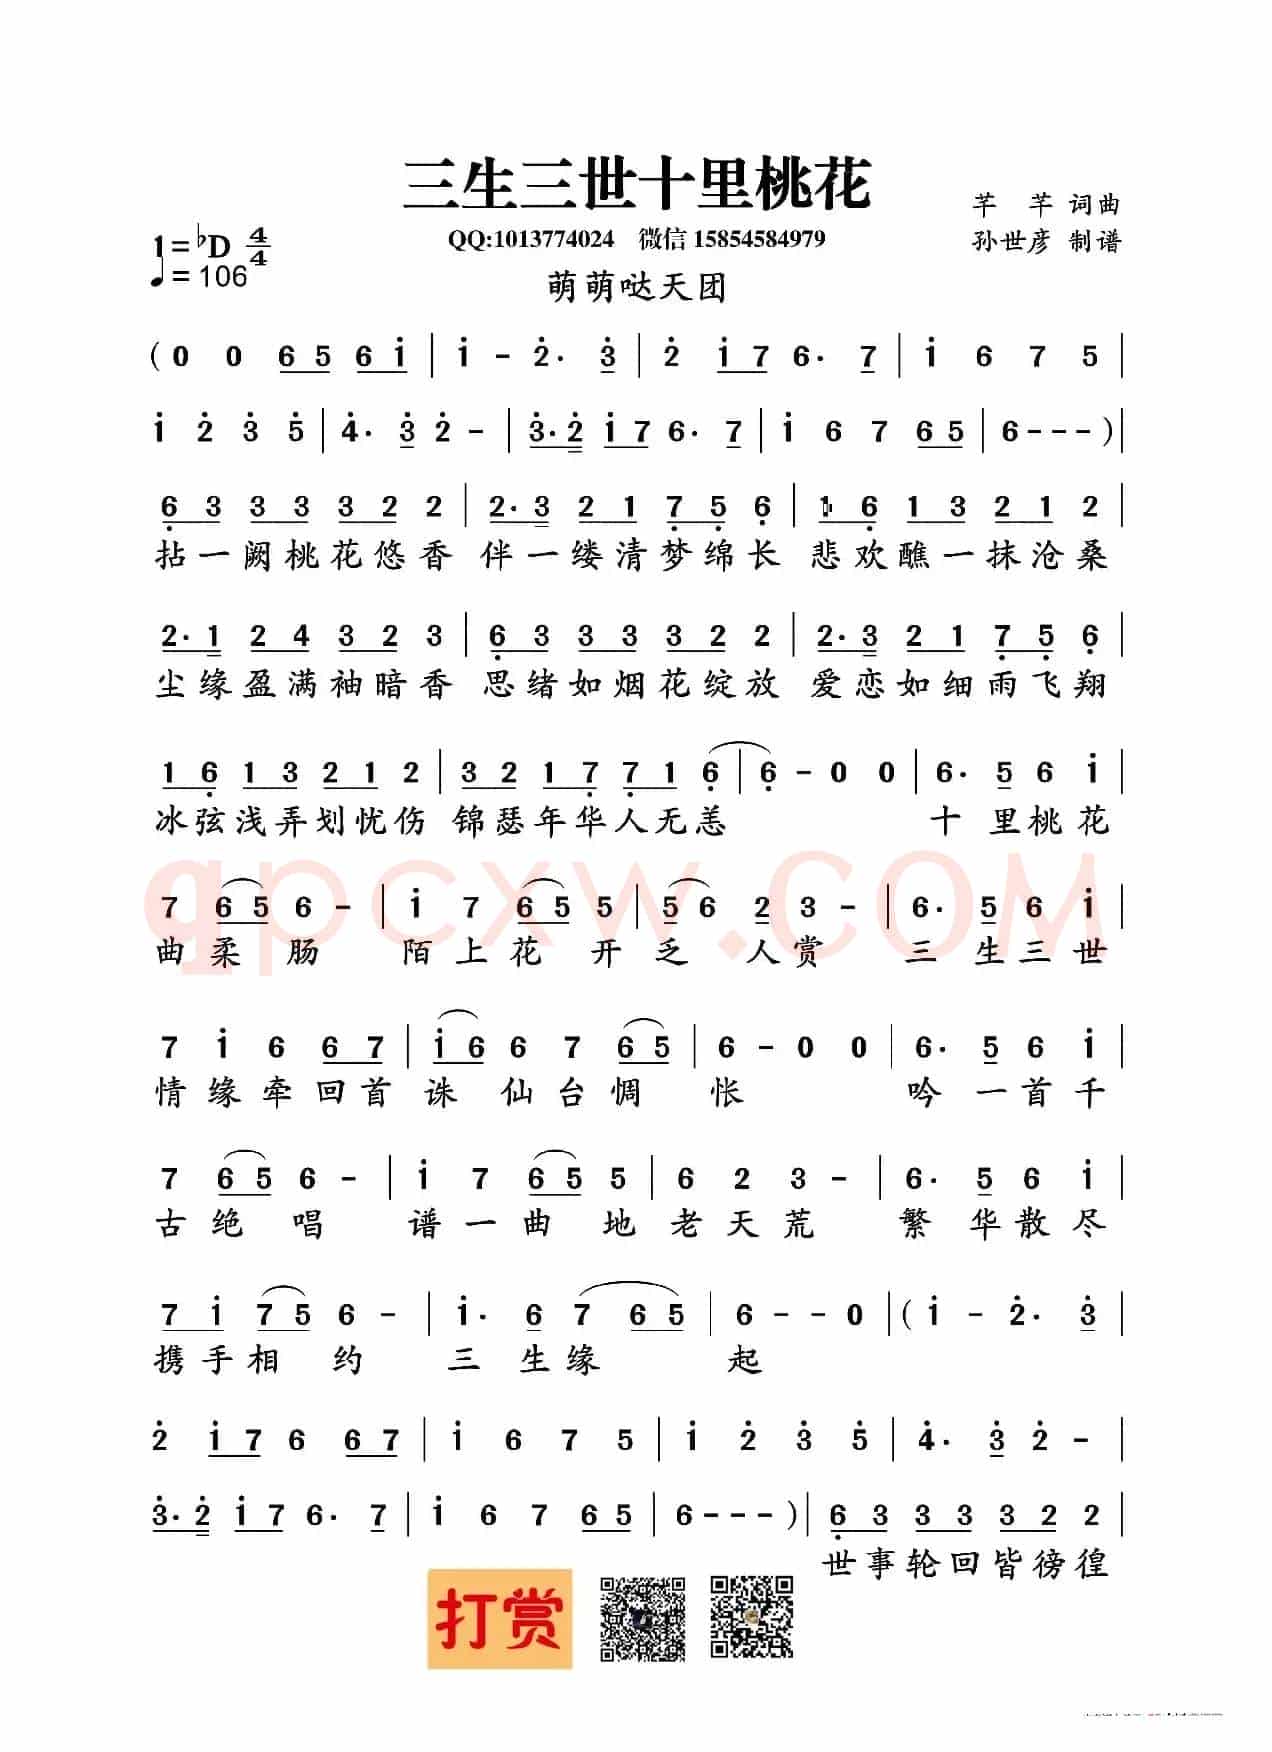 三生三世十里桃花
芊 芊 词曲
1=♭D 4/4
QQ:1013774024 微信 15854584979
孙世彦 制谱
♩= 106
萌萌哒天团
(0 0 6 5 6 i | i - 2· 3 | 2 i 7 6· 7 | i 6 7 5 |
i 2 3 5 | 4· 3 2 - | 3·2 i 7 6· 7 | i 6 7 6 5 | 6 - - - )|
6 3 3 3 3 2 2 | 2·3 2 1 7 5 6 | 1 6 1 3 2 1 2 |
拈一阙桃花悠香 伴一缕清梦绵长 悲欢醮一抹沧桑
2·1 2 4 3 2 3 | 6 3 3 3 3 2 2 | 2·3 2 1 7 5 6 |
尘缘盈满袖暗香 思绪如烟花绽放 爱恋如细雨飞翔
1 6 1 3 2 1 2 | 3 2 1 7 7 1 6 | 6 - 0 0 | 6· 5 6 i |
冰弦浅弄划忧伤 锦瑟年华人无恙 十 里桃花
qpcxw.COM
7 6 5 6 - | i 7 6 5 5 | 5 6 2 3 - | 6· 5 6 i |
曲柔肠 陌上花开乏人赏 三生三世
7 i 6 6 7 | i 6 6 7 6 5 | 6 - 0 0 | 6· 5 6 i |
情缘牵回首 诛仙台惆怅 吟一首千
7 6 5 6 - | i 7 6 5 5 | 6 2 3 - | 6· 5 6 i |
古绝唱 谱一曲地老天荒 繁华散尽
7 i 7 5 6 - | i· 6 7 6 5 | 6 - - 0 | ( i - 2· 3 |
携手相约 三生缘起
2 i 7 6 6 7 | i 6 7 5 | i 2 3 5 | 4· 3 2 - |
3·2 i 7 6· 7 | i 6 7 6 5 | 6 - - - )| 6 3 3 3 3 2 2 |
世事轮回皆徬徨
打赏